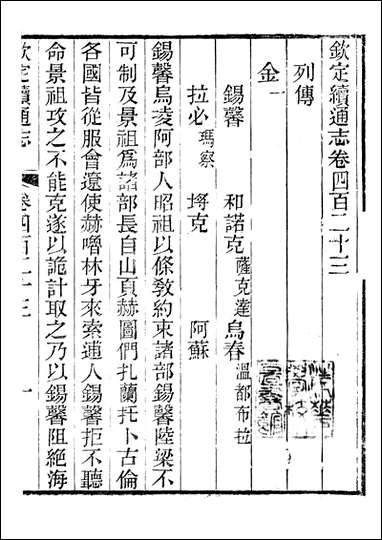 欽定續通志卷四百二十三
列傳
金一
錫馨　和諾克薩克達　烏春溫都布拉
拉必瑪察　埓克　阿蘇
錫馨烏淩阿部人昭祖以條教約束諸部錫馨陸梁不
可制及景祖爲諸部長自山頁赫圖們扎蘭托卜古倫
各國皆從服會遼使赫嚕林牙來索逋人錫馨拒不聽
命景祖攻之不能克遂以詭計取之乃以錫馨阻絕海
欽定續通志
卷四百二十三
一